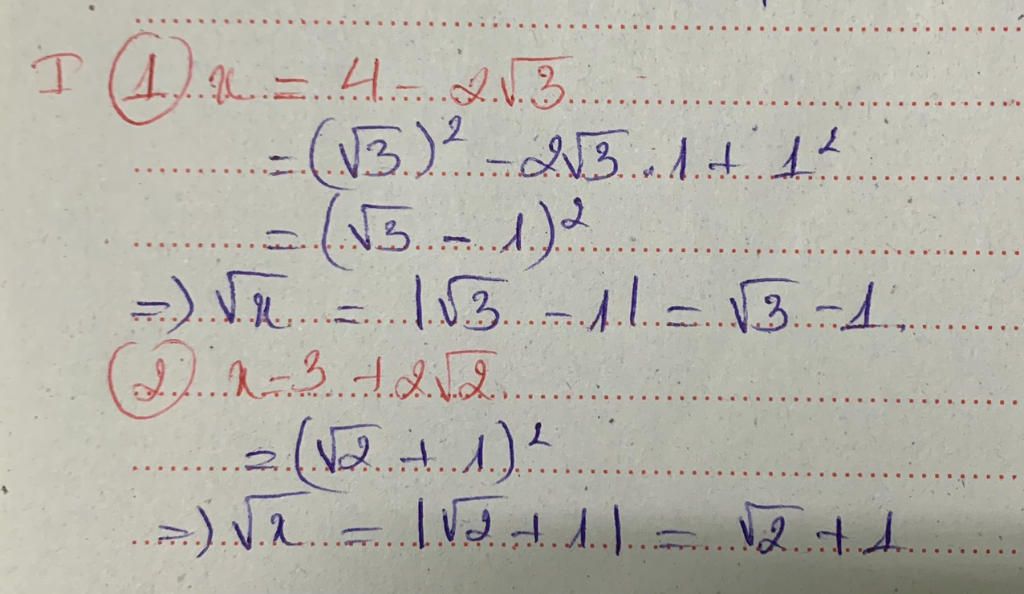 I ① x = 4 - 2√3
= (√3)² - 2√3 . 1 + 1²
= (√3 - 1)²
=) √x = |√3 - 1| = √3 - 1.
② x = 3 + 2√2
= (√2 + 1)²
=) √x = |√2 + 1| = √2 + 1